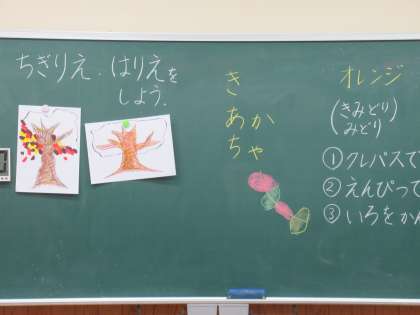 ちぎりえ．はりえを
しよう．
き
あか
ちゃ
オレンジ
(きみどり
みどり)
① クレパスで
② えんぴつで
③ いろをかん